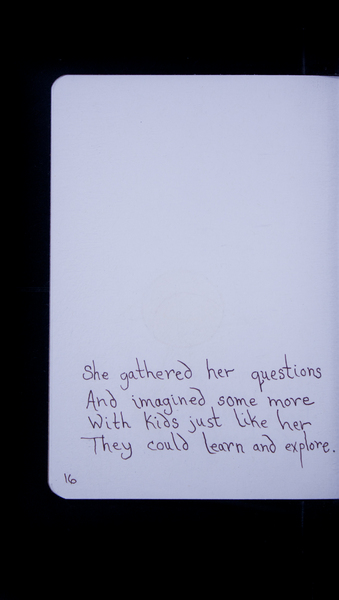 She gathered her questions
And imagined some more
With kids just like her
They could learn and explore.
16